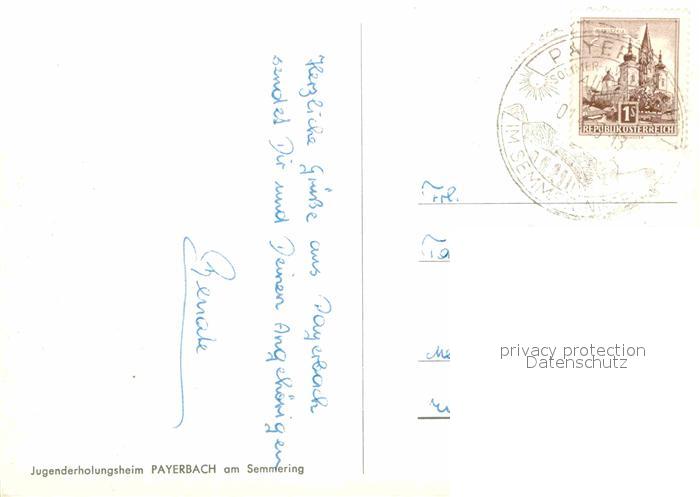 Herzliche Grüße aus Payerbach
sendet Dir und Deinen Angehörigen
Renate
Jugenderholungsheim PAYERBACH am Semmering
PAYER
1S
REPUBLIK ÖSTERREICH
IM SEMM
privacy protection
Datenschutz